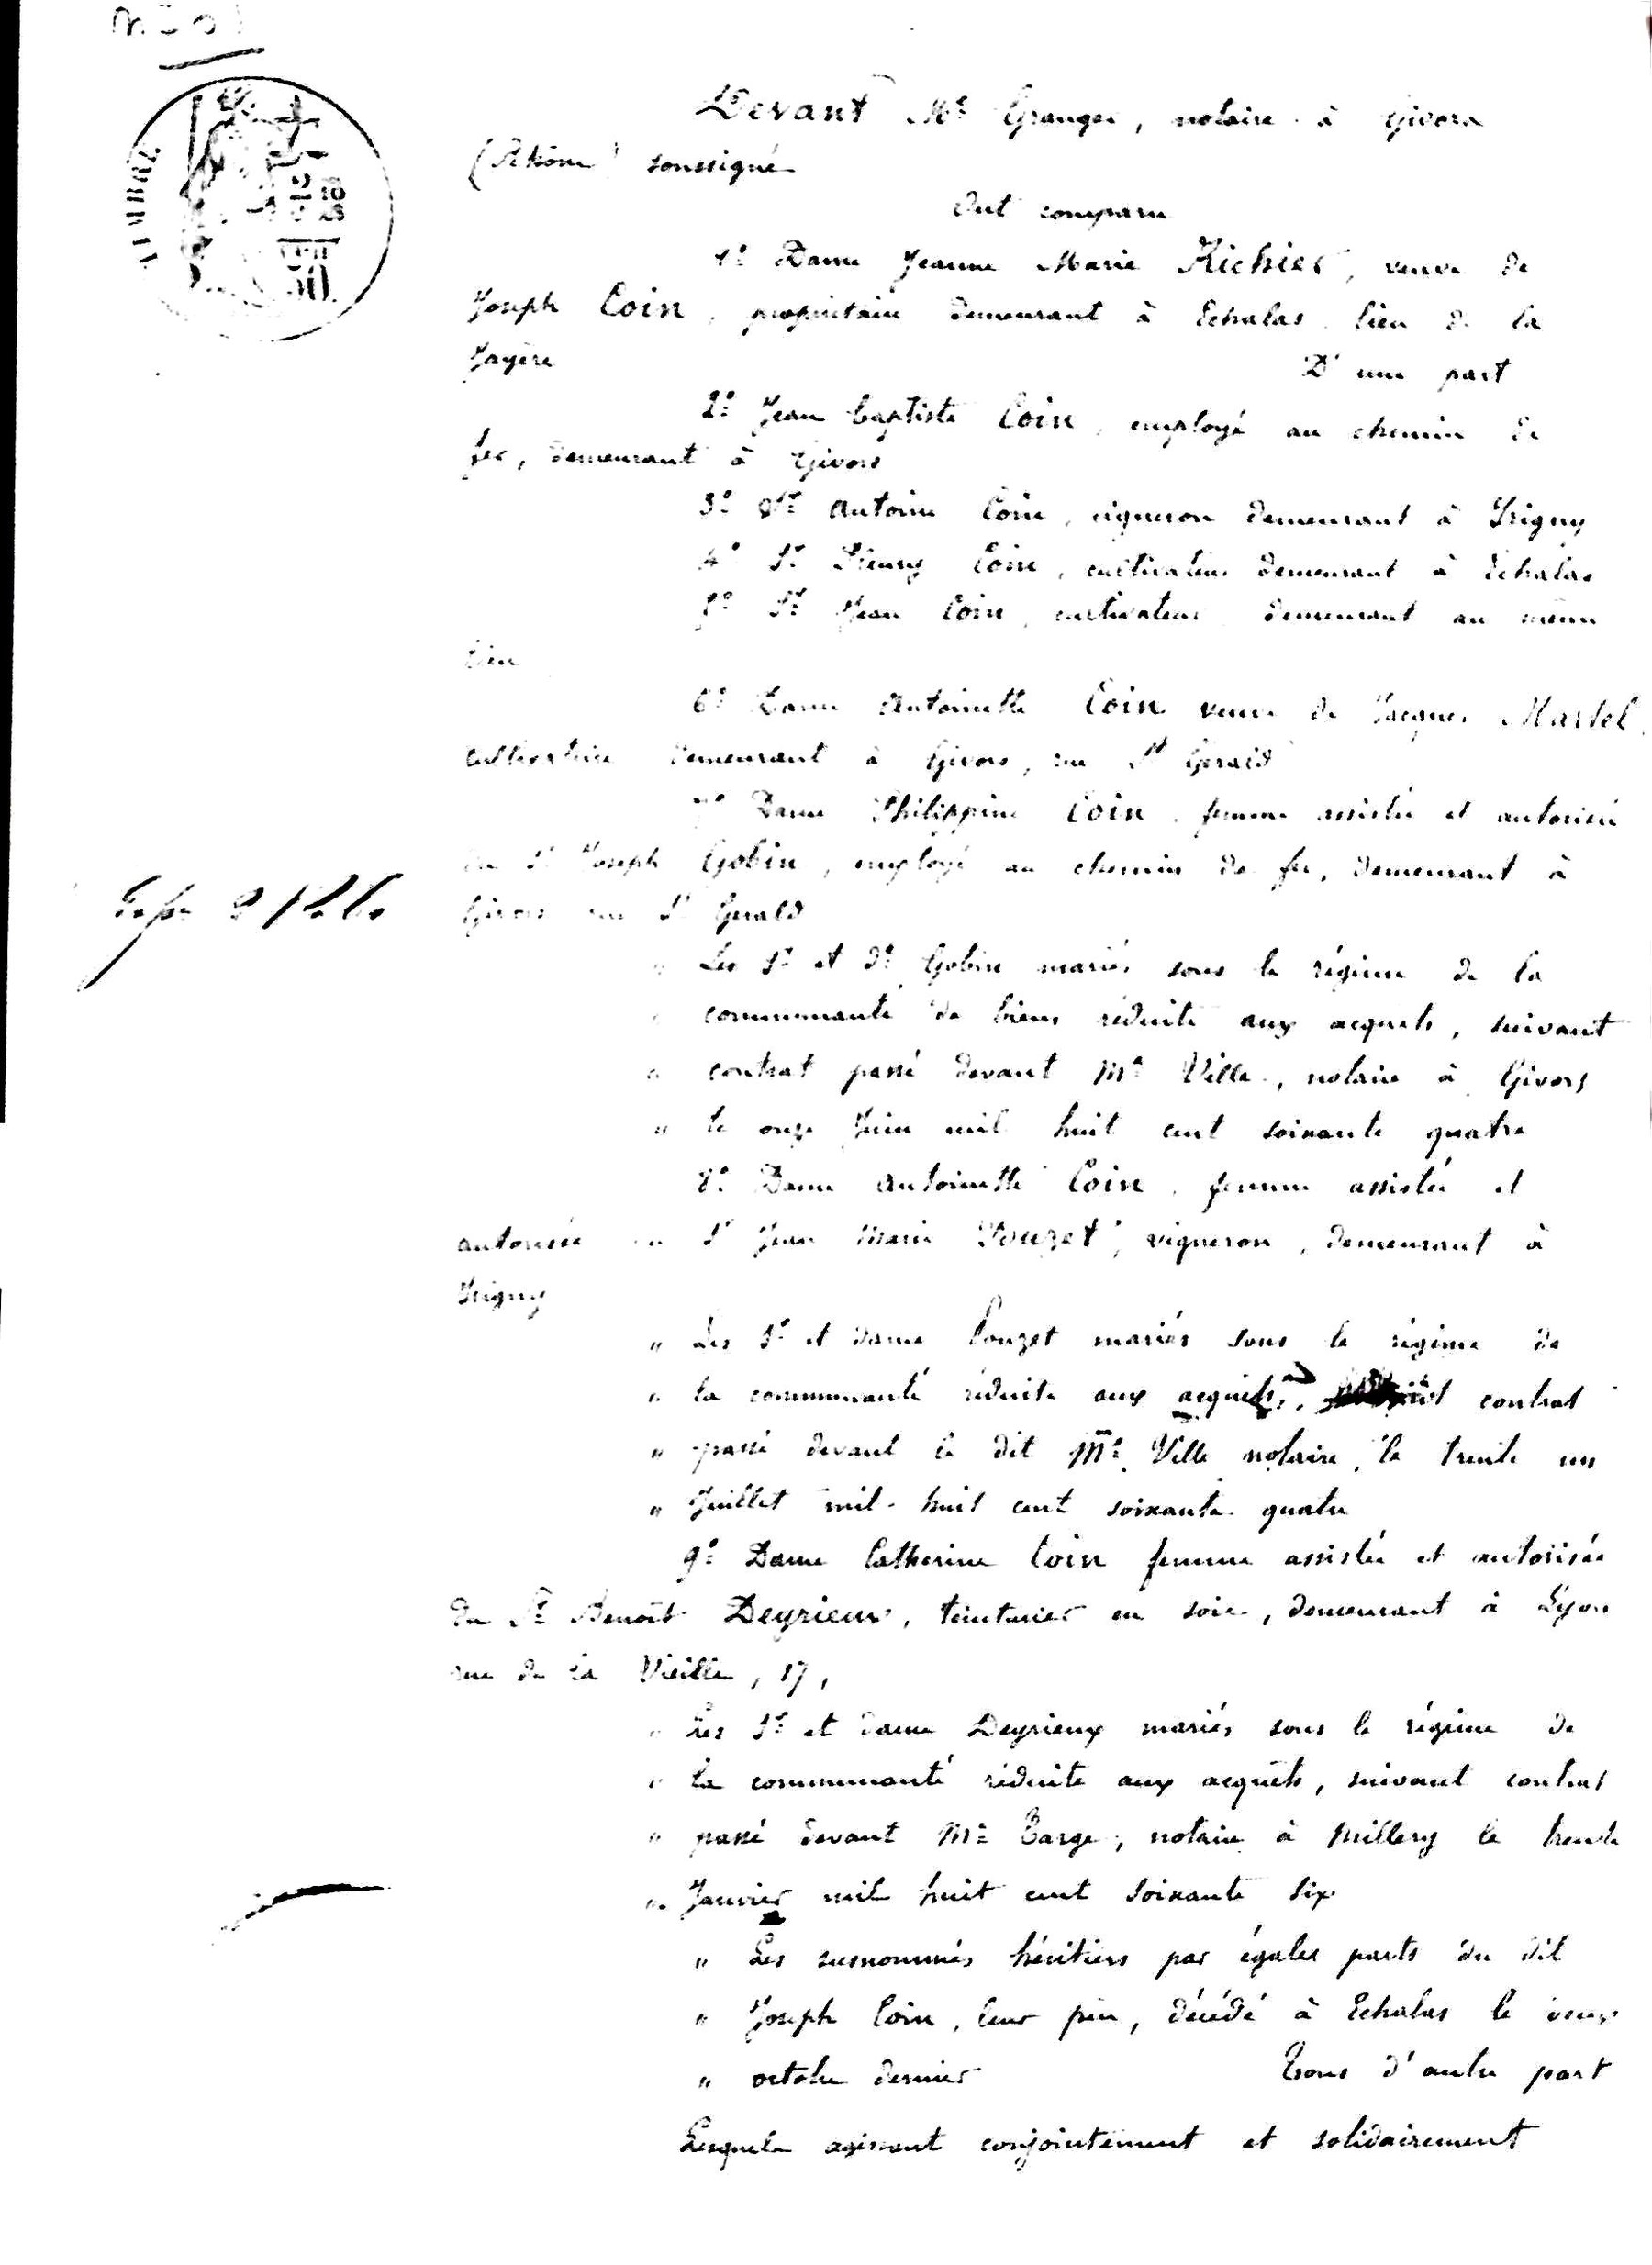 Devant Me Granger, notaire à Givors
(Rhône) soussigné
Ont comparu
1º Dame Jeanne Marie Richier, veuve de
Joseph Coin, propriétaire demeurant à Echalas lieu de la
Jayère
D'une part
2º Jean Baptiste Coin, employé au chemin de
fer, demeurant à Givors
3º Sr Antoine Coin, vigneron demeurant à Irigny
4º Sr Fleury Coin, cultivateur demeurant à Echalas
5º Sr Jean Coin, cultivateur demeurant au même
lieu
6º Dame Antoinette Coin veuve de Jacques Martel
cultivatrice demeurant à Givors, rue St Gerald
7º Dame Philippine Coin, femme assistée et autorisée
du Sr Joseph Gobin, employé au chemin de fer, demeurant à
Givors rue St Gerald
" Les Sr et De Gobin mariés sous le régime de la
" communauté de biens réduite aux acquets, suivant
" contrat passé devant Me Ville, notaire à Givors
" le onze Juin mil huit cent soixante quatre
8º Dame Antoinette Coin, femme assistée et
autorisée du Sr Jean Marie Pouzet, vigneron, demeurant à
Irigny
" Les Sr et dame Pouzet mariés sous le régime de
" la communauté réduite aux acquets, contrat
" passé devant le dit Me Ville notaire, le trente un
" Juillet mil huit cent soixante quatre
9º Dame Catherine Coin femme assistée et autorisée
du Sr Benoît Deyrieux, teinturier en soie, demeurant à Lyon
rue de la Vieille, 17,
" Les Sr et dame Deyrieux mariés sous le régime de
" la communauté réduite aux acquêts, suivant contrat
" passé devant Me Targe, notaire à Millery le trente
" Janvier mil huit cent soixante six
" Les susnommés héritiers par égales parts du dit
" Joseph Coin, leur père, décédé à Echalas le
" octobre dernier Tous d'autre part
Lesquels agissant conjointement et solidairement